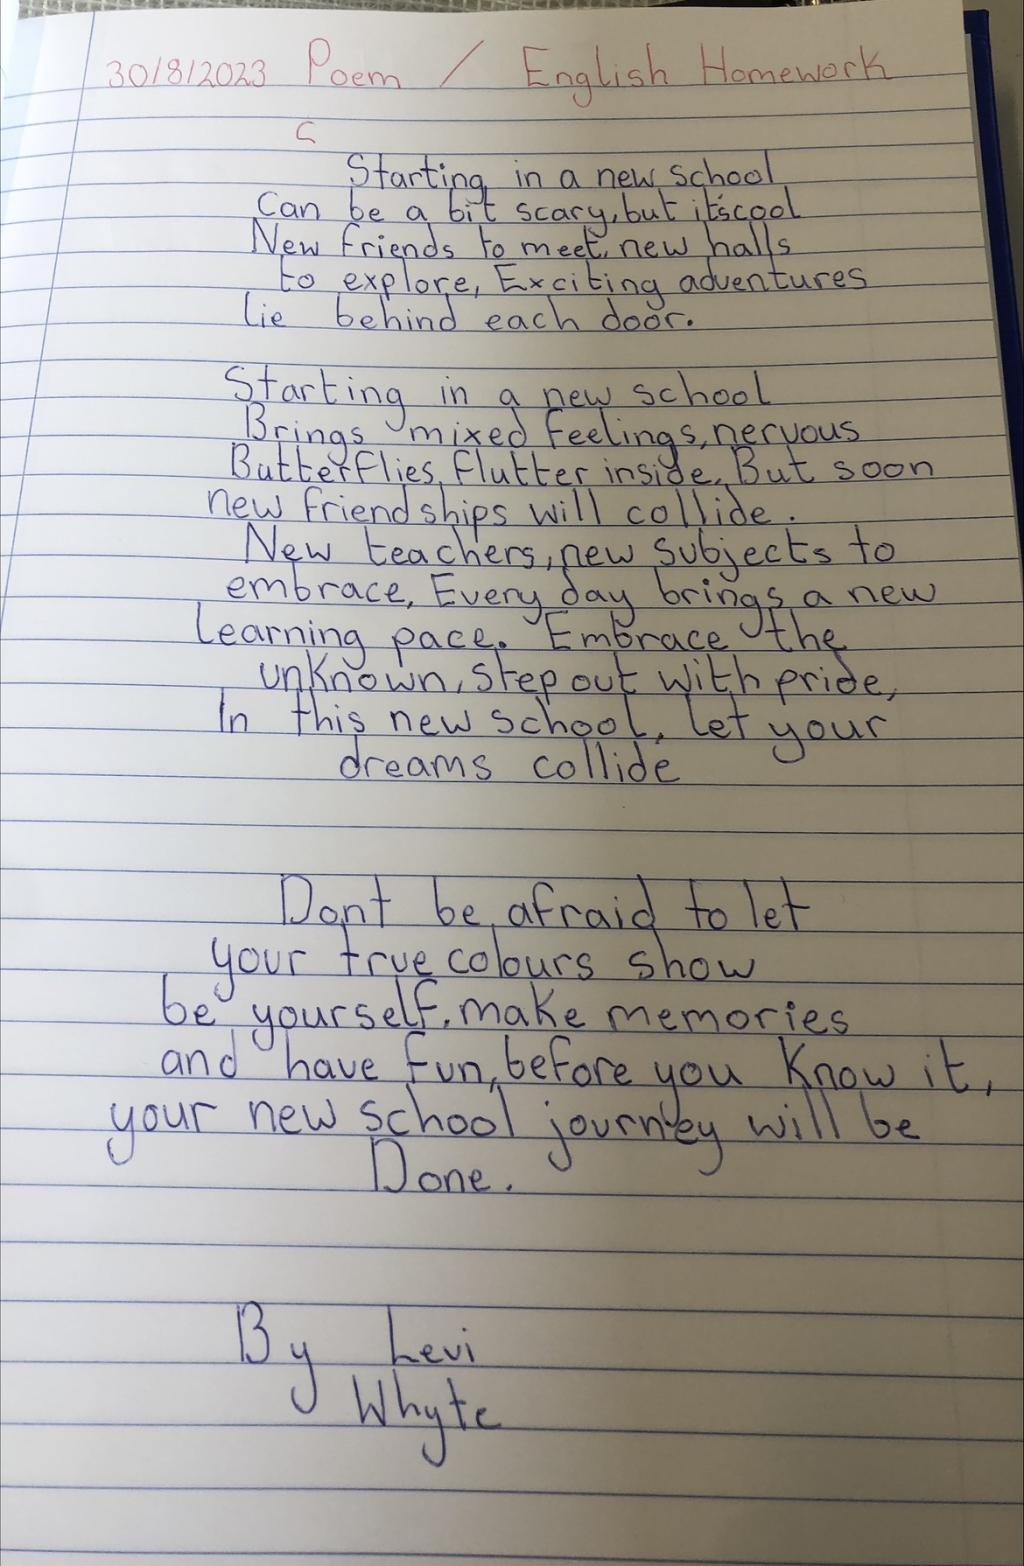 30/8/2023 Poem / English Homework
C
Starting in a new school
Can be a bit scary, but it's cool
New friends to meet, new halls
to explore, Exciting adventures
lie behind each door.
Starting in a new school
Brings mixed feelings, nervous
Butterflies, flutter inside, But soon
new friendships will collide.
New teachers, new subjects to
embrace, Every day brings a new
learning pace. Embrace the
unknown, step out with pride,
In this new school, let your
dreams collide
Dont be afraid to let
your true colours show
be yourself, make memories
and have fun, before you know it,
your new school journey will be
Done.
By Levi
Whyte